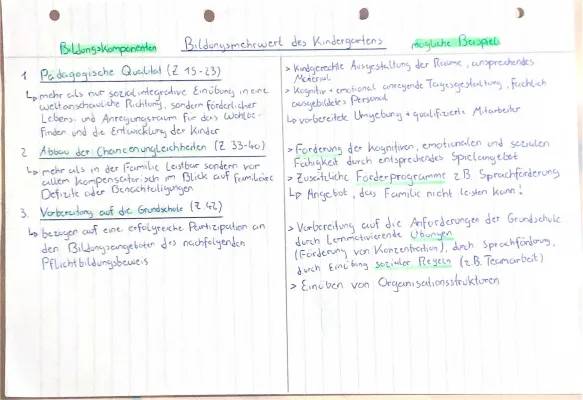 Bildungskomponenten
Bildungsmehrwert des Kindergartens
mögliche Beispiele
1. Pädagogische Qualität (Z 15-23)
↳ mehr als nur sozialintegrative Einübung in eine
weltanschauliche Richtung, sondern förderlicher
Lebens- und Anregungsraum für das Wohlbe-
finden und die Entwicklung der Kinder
2. Abbau der Chancenungleichheiten (Z 33-40)
↳ mehr als in der Familie leistbar sondern vor
allem kompensatorisch im Blick auf familiäre
Defizite oder Benachteiligungen
3. Vorbereitung auf die Grundschule (Z 42)
↳ bezogen auf eine erfolgreiche Partizipation an
den Bildungsangeboten des nachfolgenden
Pflichtbildungsbeweis
> Kindgerechte Ausgestaltung der Räume, ansprechendes
Material
> Kognitiv + emotional anregende Tagesgestaltung, fachlich
ausgebildetes Personal
↳ vorbereitete Umgebung + qualifizierte Mitarbeiter
> Förderung der kognitiven, emotionalen und sozialen
Fähigkeit durch entsprechendes Spielangebot
> Zusätzliche Förderprogramme z.B. Sprachförderung
↳ Angebot, das Familie nicht leisten kann!
> Vorbereitung auf die Anforderungen der Grundschule
durch Lernmotivierende Übungen
(Förderung von Konzentration), durch Sprachförderung,
durch Einübung sozialer Regeln (z.B. Teamarbeit)
> Einüben von Organisationsstrukturen